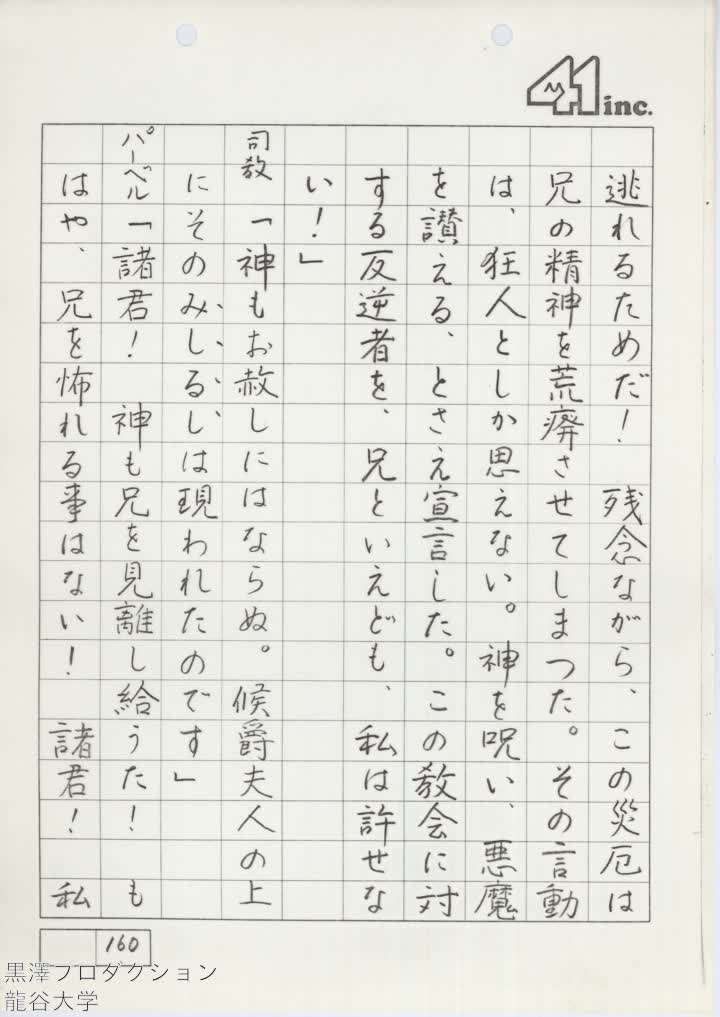 41 inc.
逃れるためだ！　残念ながら、この災厄は
兄の精神を荒廃させてしまつた。その言動
は、狂人としか思えない。神を呪い、悪魔
を讃える、とさえ宣言した。この教会に対
する反逆者を、兄といえども、私は許せな
い！」
司教「神もお赦しにはならぬ。候爵夫人の上
にそのみしるしは現われたのです」
パーベル「諸君！　神も兄を見離し給うた！も
はや、兄を怖れる事はない！　諸君！　私
160
黒澤プロダクション
龍谷大学